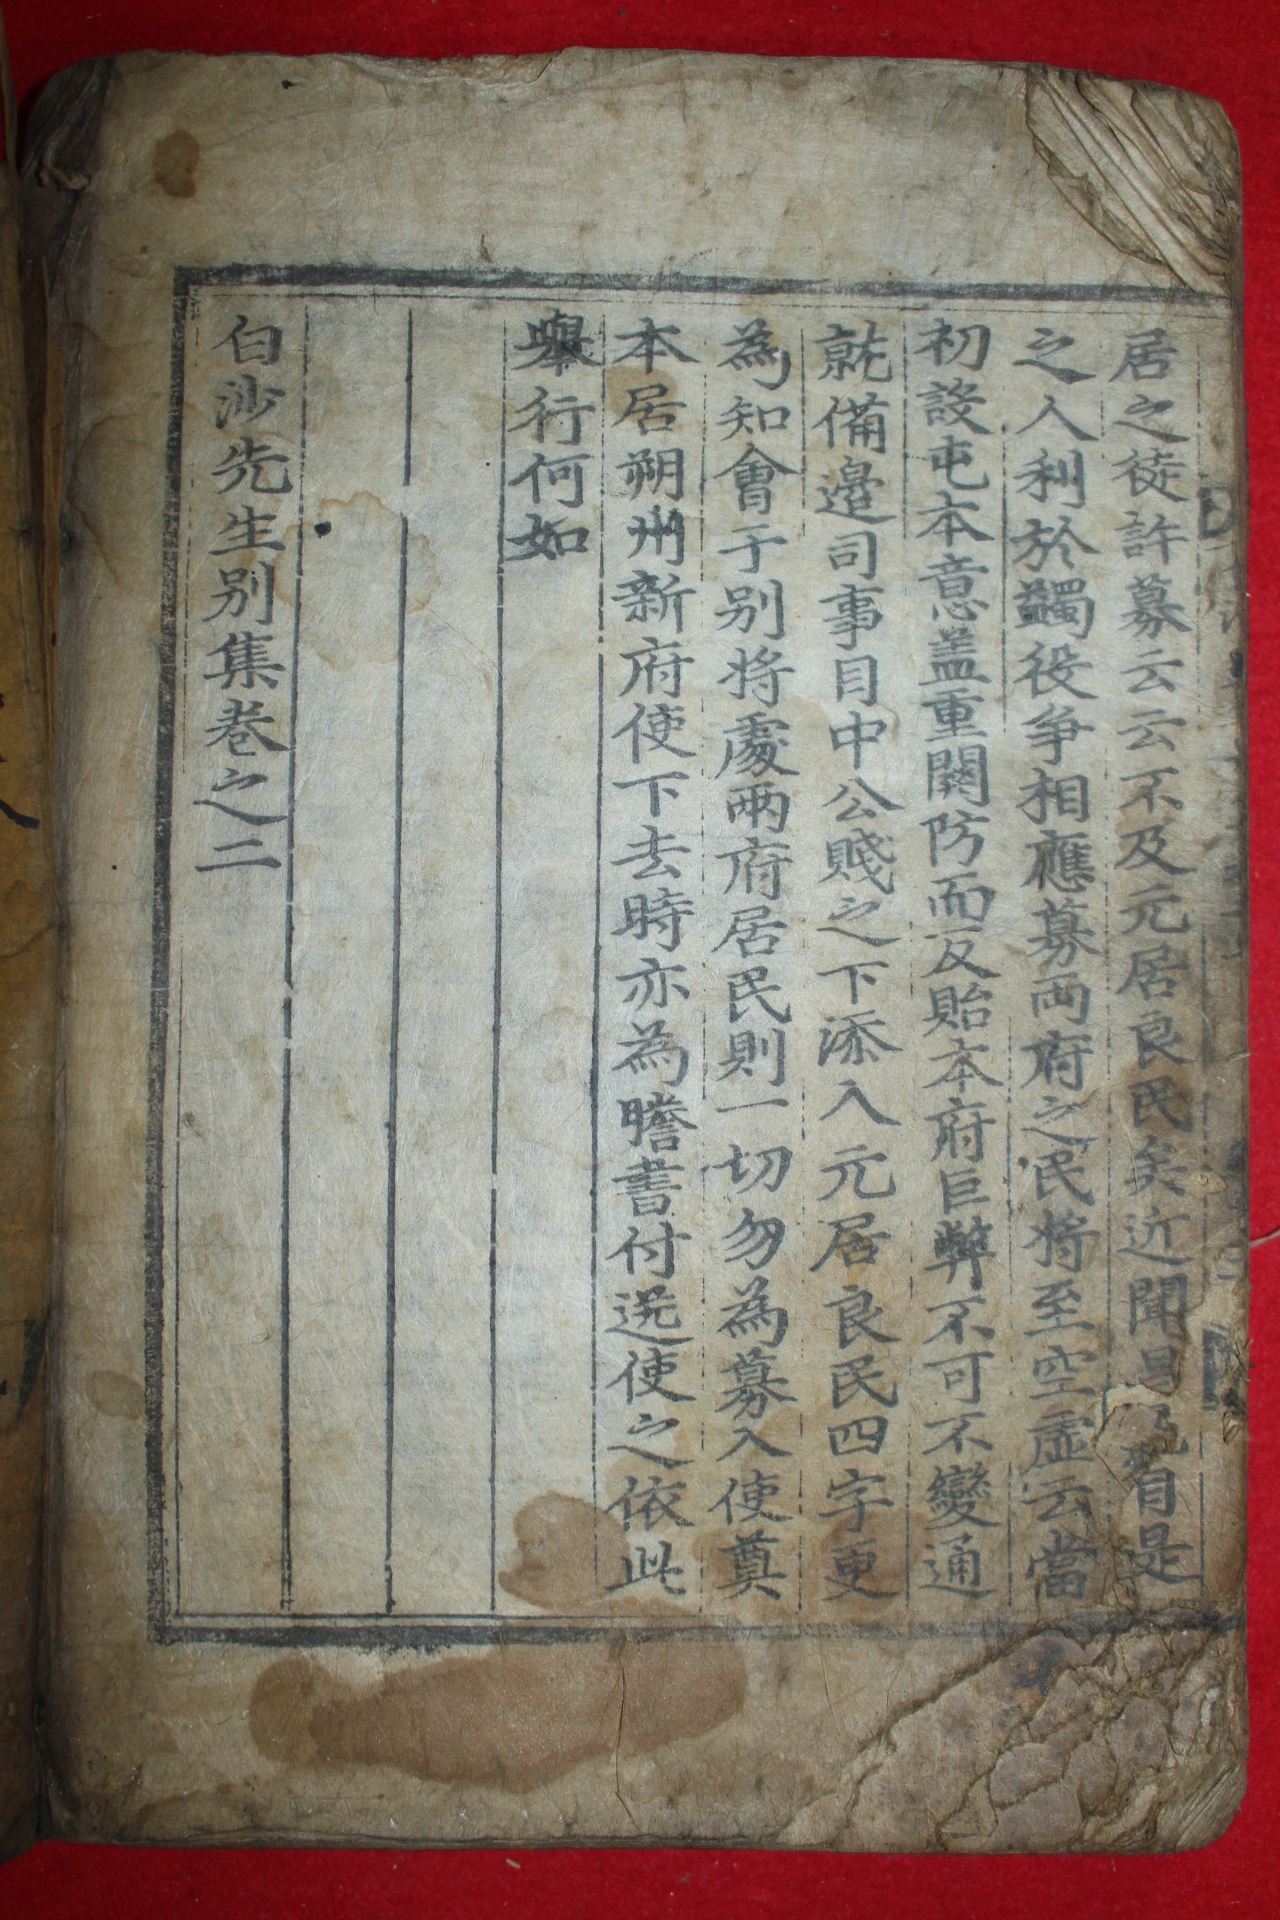 居之徒許募云云不及元居良民矣近聞昌自是
之人利於蠲役爭相應募兩府之民將至空虛云當
初設屯本意盖重關防而反貽本府巨弊不可不變通
就備邊司事目中公賤之下添入元居良民四字更
為知會于別將處兩府居民則一切勿為募入使奠
本居朔州新府使下去時亦為謄書付送使之依此
擧行何如
白沙先生別集卷之二